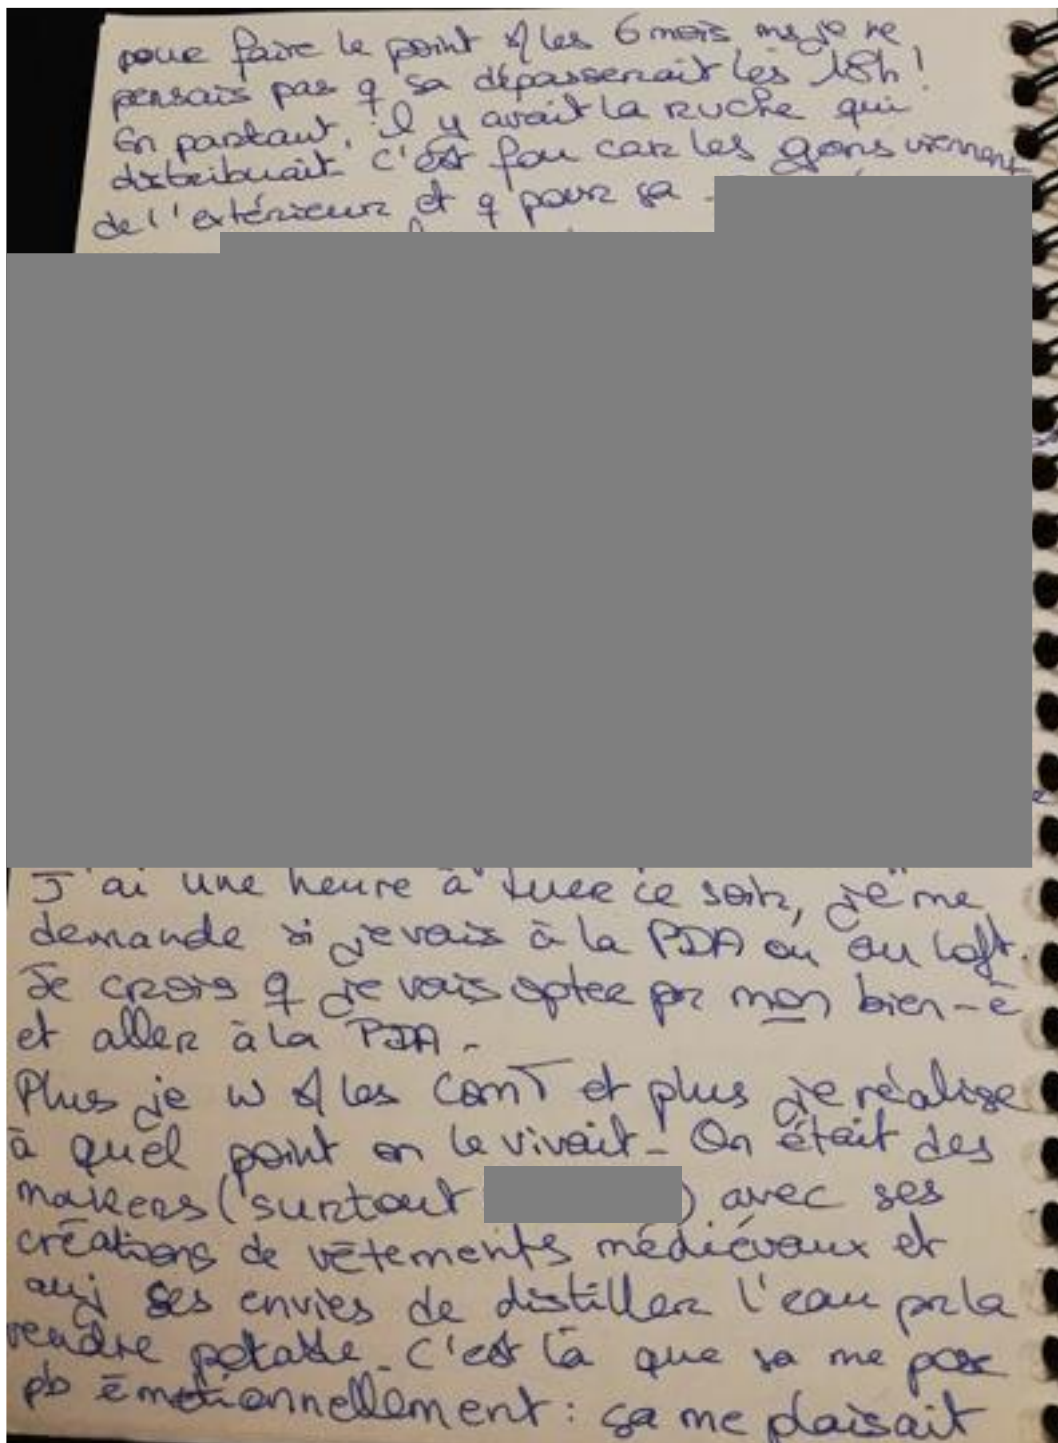 pour faire le point les 6 mois ms je ne
pensais pas q sa dépasserait les 18h!
En partant, il y avait la ruche qui
distribuait. C'est fou car les gens viennent
de l'extérieur et q pour sa
J'ai une heure à "tuer" ce soir, je me
demande si je vais à la PDA ou au loft.
Je crois q je vais opter pr mon bien-ê
et aller à la PDA.
Plus je w les ComT et plus je réalise
à quel point on le vivait - On était des
makers (surtout ) avec ses
créations de vêtements médiévaux et
auj ses envies de distiller l'eau pr la
rendre potable. C'est là que sa me pose
pb émotionnellement : sa me plaisait